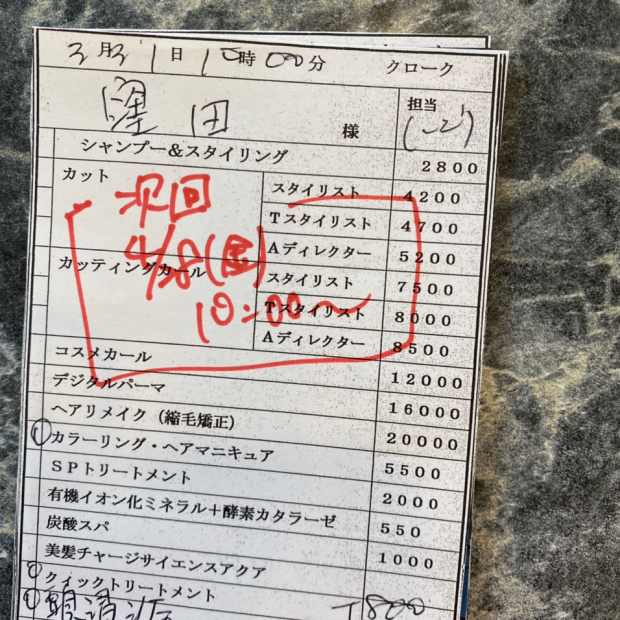 3月31日10時00分 クローク
窪田 様 担当
シャンプー&スタイリング 2800
カット スタイリスト 4200
Tスタイリスト 4700
Aディレクター 5200
カッティングカール スタイリスト 7500
Tスタイリスト 8000
Aディレクター 8500
次回
4/8(金)
10:00〜
コスメカール 12000
デジタルパーマ 16000
ヘアリメイク(縮毛矯正) 20000
① カラーリング・ヘアマニキュア 5500
SPトリートメント 2000
有機イオン化ミネラル+酵素カタラーゼ 550
炭酸スパ 1000
美髪チャージサイエンスアクア
クィックトリートメント